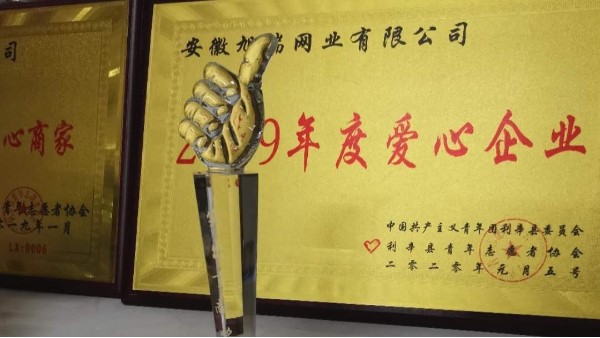 司
心商家
志愿者协会
一九年一月
LA:0006
安徽旭瑞网业有限公司
2019年度爱心企业
中国共产主义青年团利辛县委员会
利辛县青年志愿者协会
二零二零年元月五号